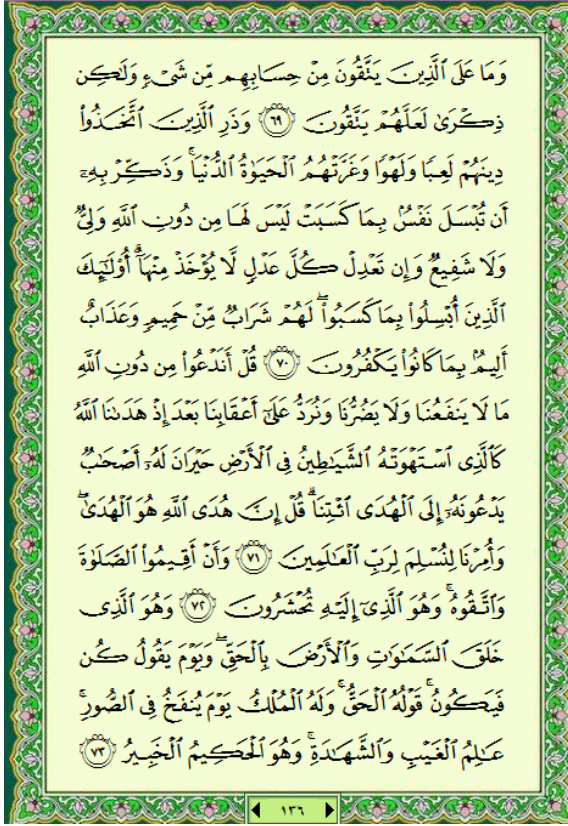 وَمَا عَلَى ٱلَّذِينَ يَتَّقُونَ مِنْ حِسَابِهِم مِّن شَىْءٍ وَلَٰكِن
ذِكْرَىٰ لَعَلَّهُمْ يَتَّقُونَ ٦٩ وَذَرِ ٱلَّذِينَ ٱتَّخَذُوا۟
دِينَهُمْ لَعِبًا وَلَهْوًا وَغَرَّتْهُمُ ٱلْحَيَوٰةُ ٱلدُّنْيَا ۚ وَذَكِّرْ بِهِۦٓ
أَن تُبْسَلَ نَفْسٌۢ بِمَا كَسَبَتْ لَيْسَ لَهَا مِن دُونِ ٱللَّهِ وَلِىٌّ
وَلَا شَفِيعٌ وَإِن تَعْدِلْ كُلَّ عَدْلٍ لَّا يُؤْخَذْ مِنْهَآ ۗ أُو۟لَٰٓئِكَ
ٱلَّذِينَ أُبْسِلُوا۟ بِمَا كَسَبُوا۟ ۖ لَهُمْ شَرَابٌ مِّنْ حَمِيمٍ وَعَذَابٌ
أَلِيمٌۢ بِمَا كَانُوا۟ يَكْفُرُونَ ٧٠ قُلْ أَنَدْعُوا۟ مِن دُونِ ٱللَّهِ
مَا لَا يَنفَعُنَا وَلَا يَضُرُّنَا وَنُرَدُّ عَلَىٰٓ أَعْقَابِنَا بَعْدَ إِذْ هَدَىٰنَا ٱللَّهُ
كَٱلَّذِى ٱسْتَهْوَتْهُ ٱلشَّيَٰطِينُ فِى ٱلْأَرْضِ حَيْرَانَ لَهُۥٓ أَصْحَٰبٌ
يَدْعُونَهُۥٓ إِلَى ٱلْهُدَى ٱئْتِنَا ۗ قُلْ إِنَّ هُدَى ٱللَّهِ هُوَ ٱلْهُدَىٰ ۖ
وَأُمِرْنَا لِنُسْلِمَ لِرَبِّ ٱلْعَٰلَمِينَ ٧١ وَأَنْ أَقِيمُوا۟ ٱلصَّلَوٰةَ
وَٱتَّقُوهُ ۚ وَهُوَ ٱلَّذِىٓ إِلَيْهِ تُحْشَرُونَ ٧٢ وَهُوَ ٱلَّذِى
خَلَقَ ٱلسَّمَٰوَٰتِ وَٱلْأَرْضَ بِٱلْحَقِّ ۖ وَيَوْمَ يَقُولُ كُن
فَيَكُونُ ۚ قَوْلُهُ ٱلْحَقُّ ۚ وَلَهُ ٱلْمُلْكُ يَوْمَ يُنفَخُ فِى ٱلصُّورِ ۚ
عَٰلِمُ ٱلْغَيْبِ وَٱلشَّهَٰدَةِ ۚ وَهُوَ ٱلْحَكِيمُ ٱلْخَبِيرُ ٧٣
١٣٦